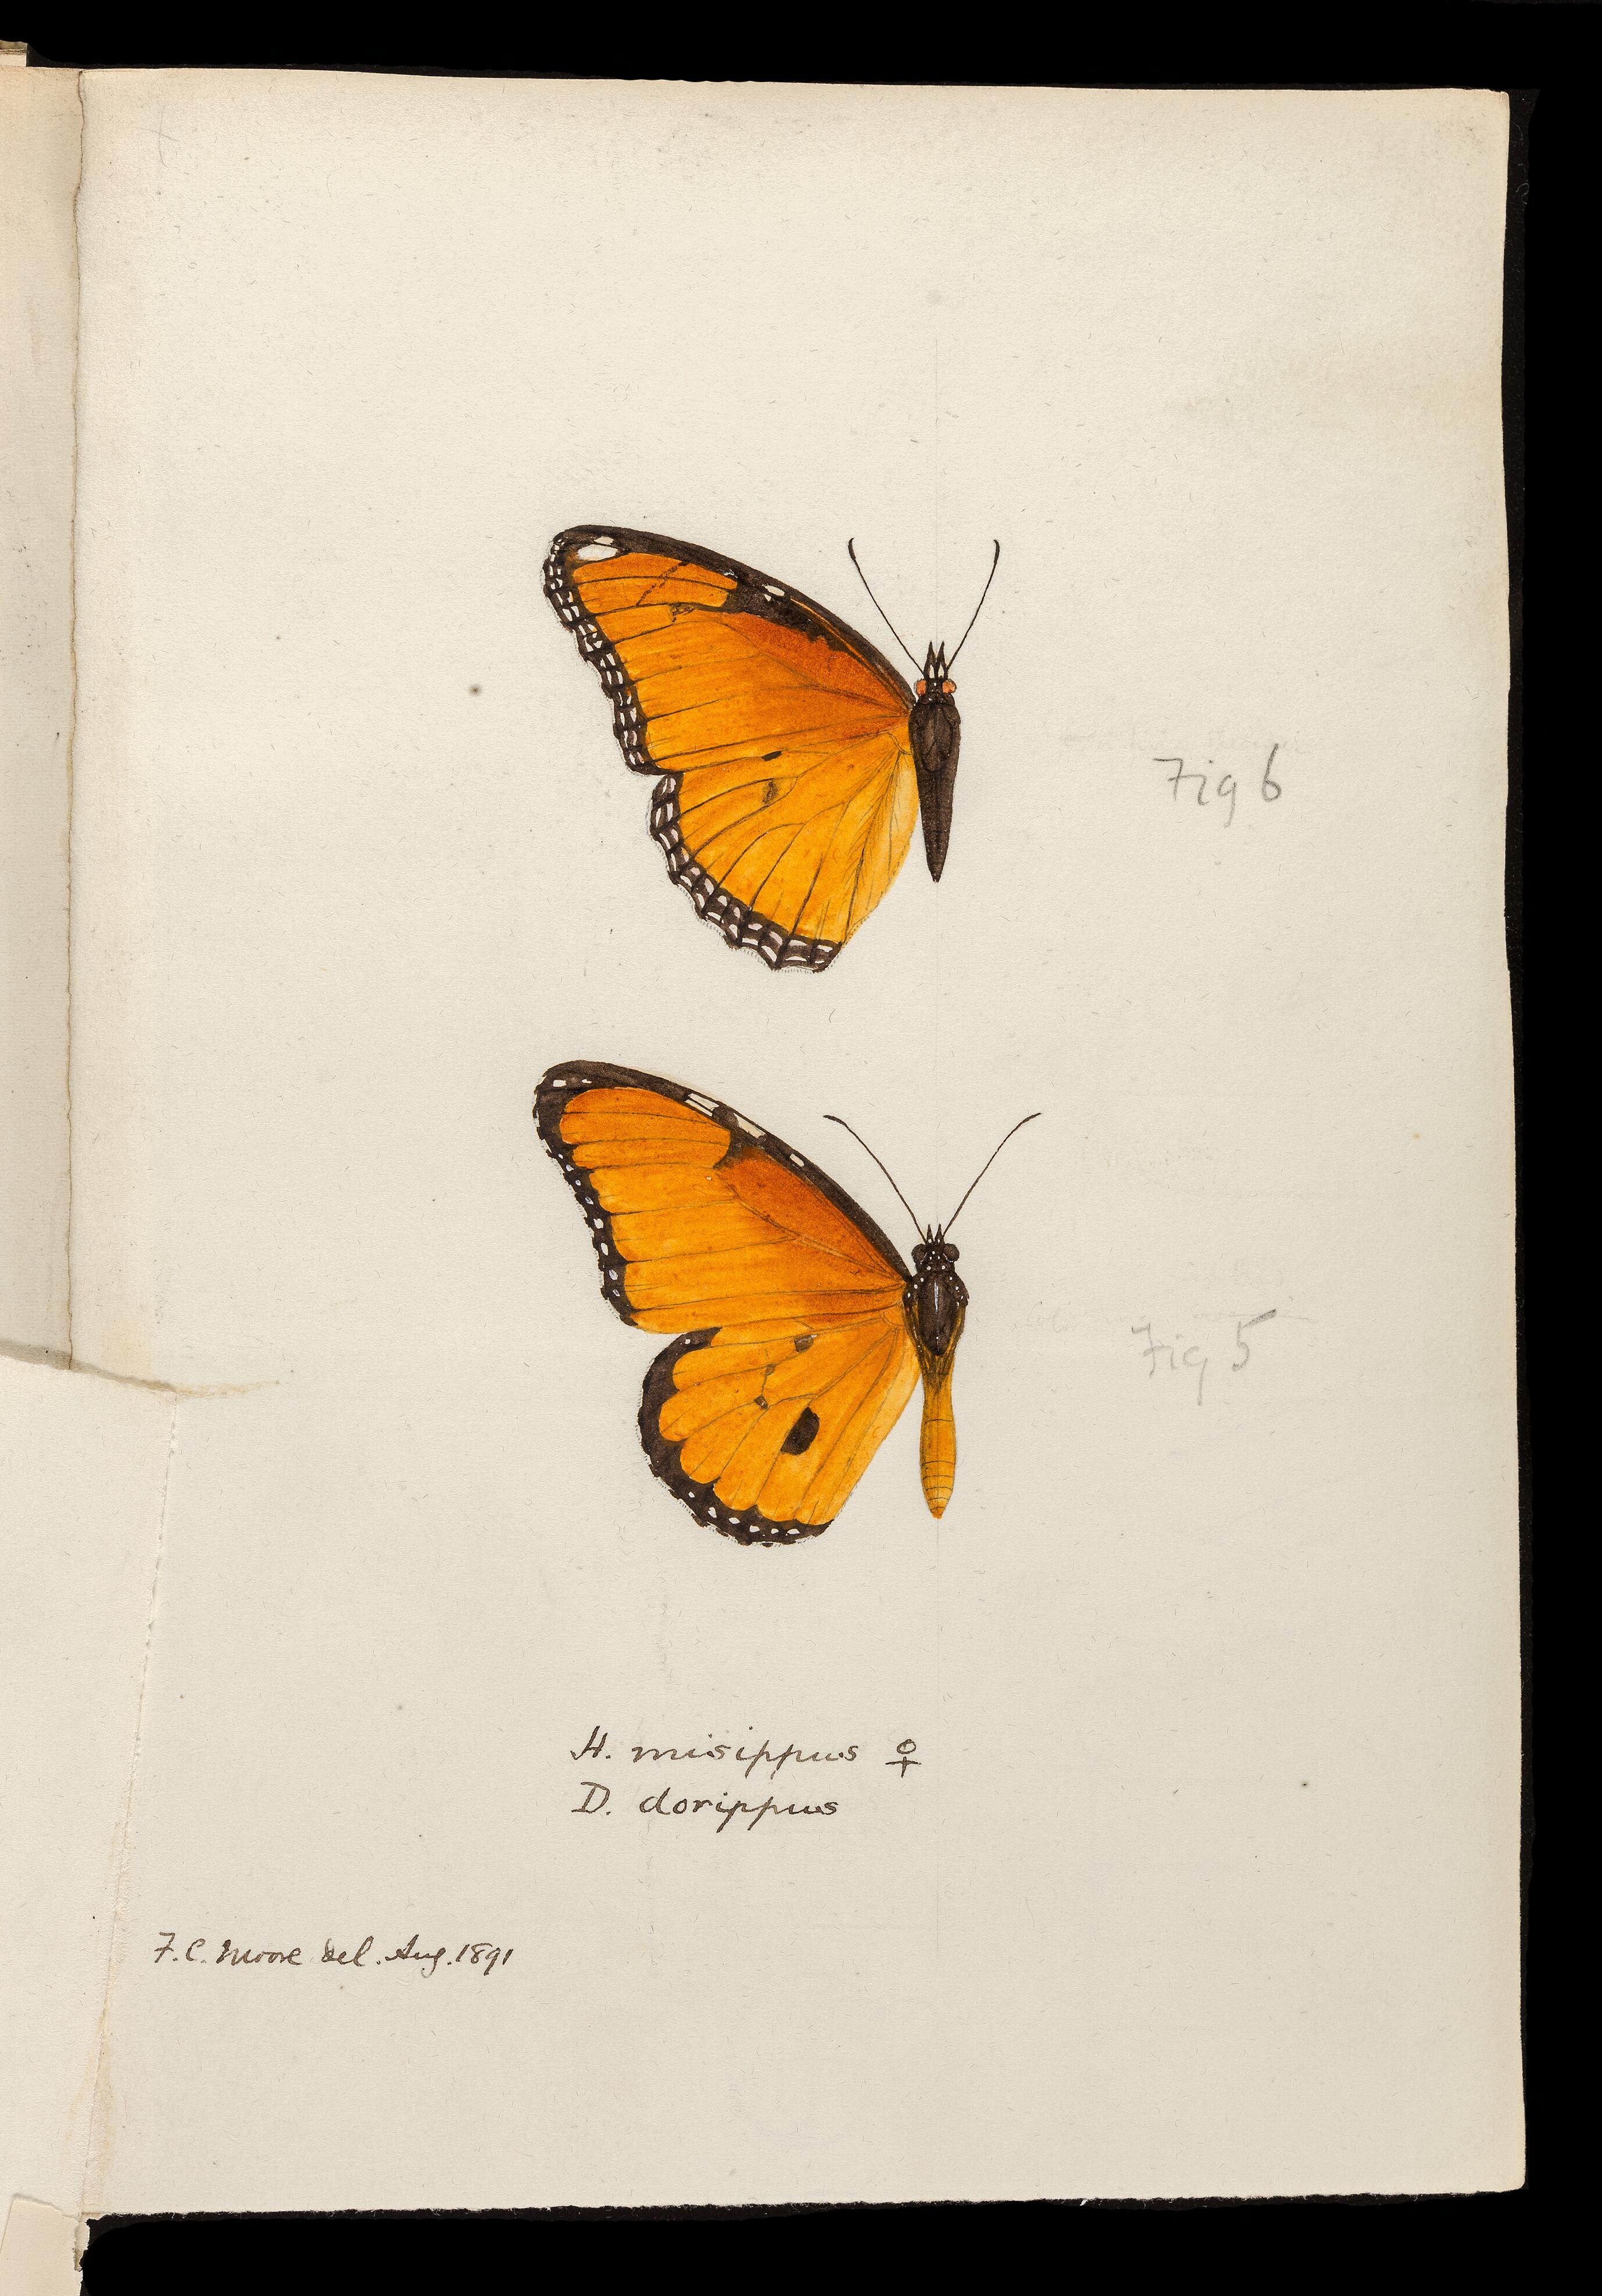 Fig 6
Fig 5
H. misippus ♀
D. dorippus
F. C. Moore del. Aug. 1891